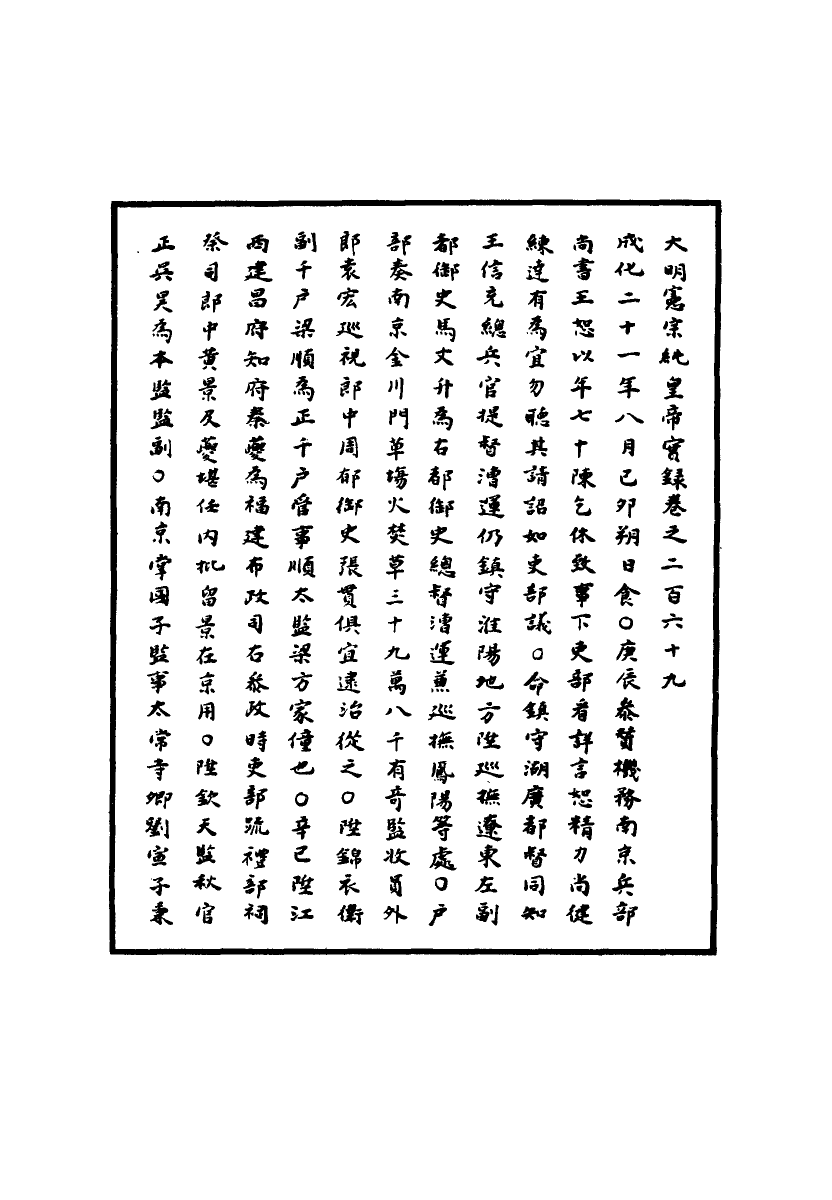 大明憲宗純皇帝實録卷之二百六十九
成化二十一年八月己夘朔日食○庚辰叅贊機務南京兵部
尚書王恕以年七十陳乞休致事下吏部看詳言恕精力尚健
練達有為宜勿聽其請詔如吏部議○命鎮守湖廣都督同知
王信充總兵官提督漕運仍鎮守淮陽地方陞巡撫遼東左副
都御史馬文升為右都御史總督漕運蕪巡撫鳳陽等處○户
部奏南京金川門草塲火焚草三十九萬八千有奇監收員外
郎袁宏巡視郎中周郁御史張貫俱宜逮治從之○陞錦衣衛
副千户梁順為正千户管事順太監梁方家僮也○辛巳陞江
西建昌府知府秦夔為福建布政司右叅政時吏部疏禮部祠
祭司郎中黄景及夔堪任内批留景在京用○陞欽天監秋官
正吳昊為本監監副○南京掌國子監事太常寺卿劉宣子秉